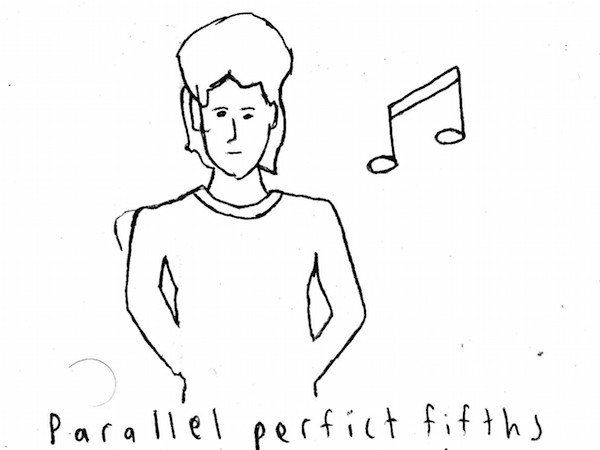 Parallel perfict fifths